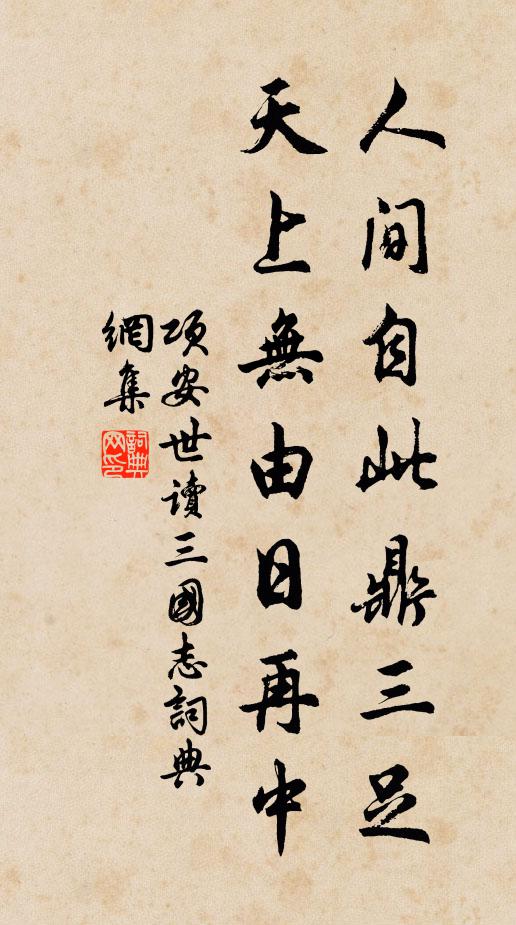 人間自此鼎三足
天上無由日再中
項安世讀三國志詞典
網集
詞典
网印